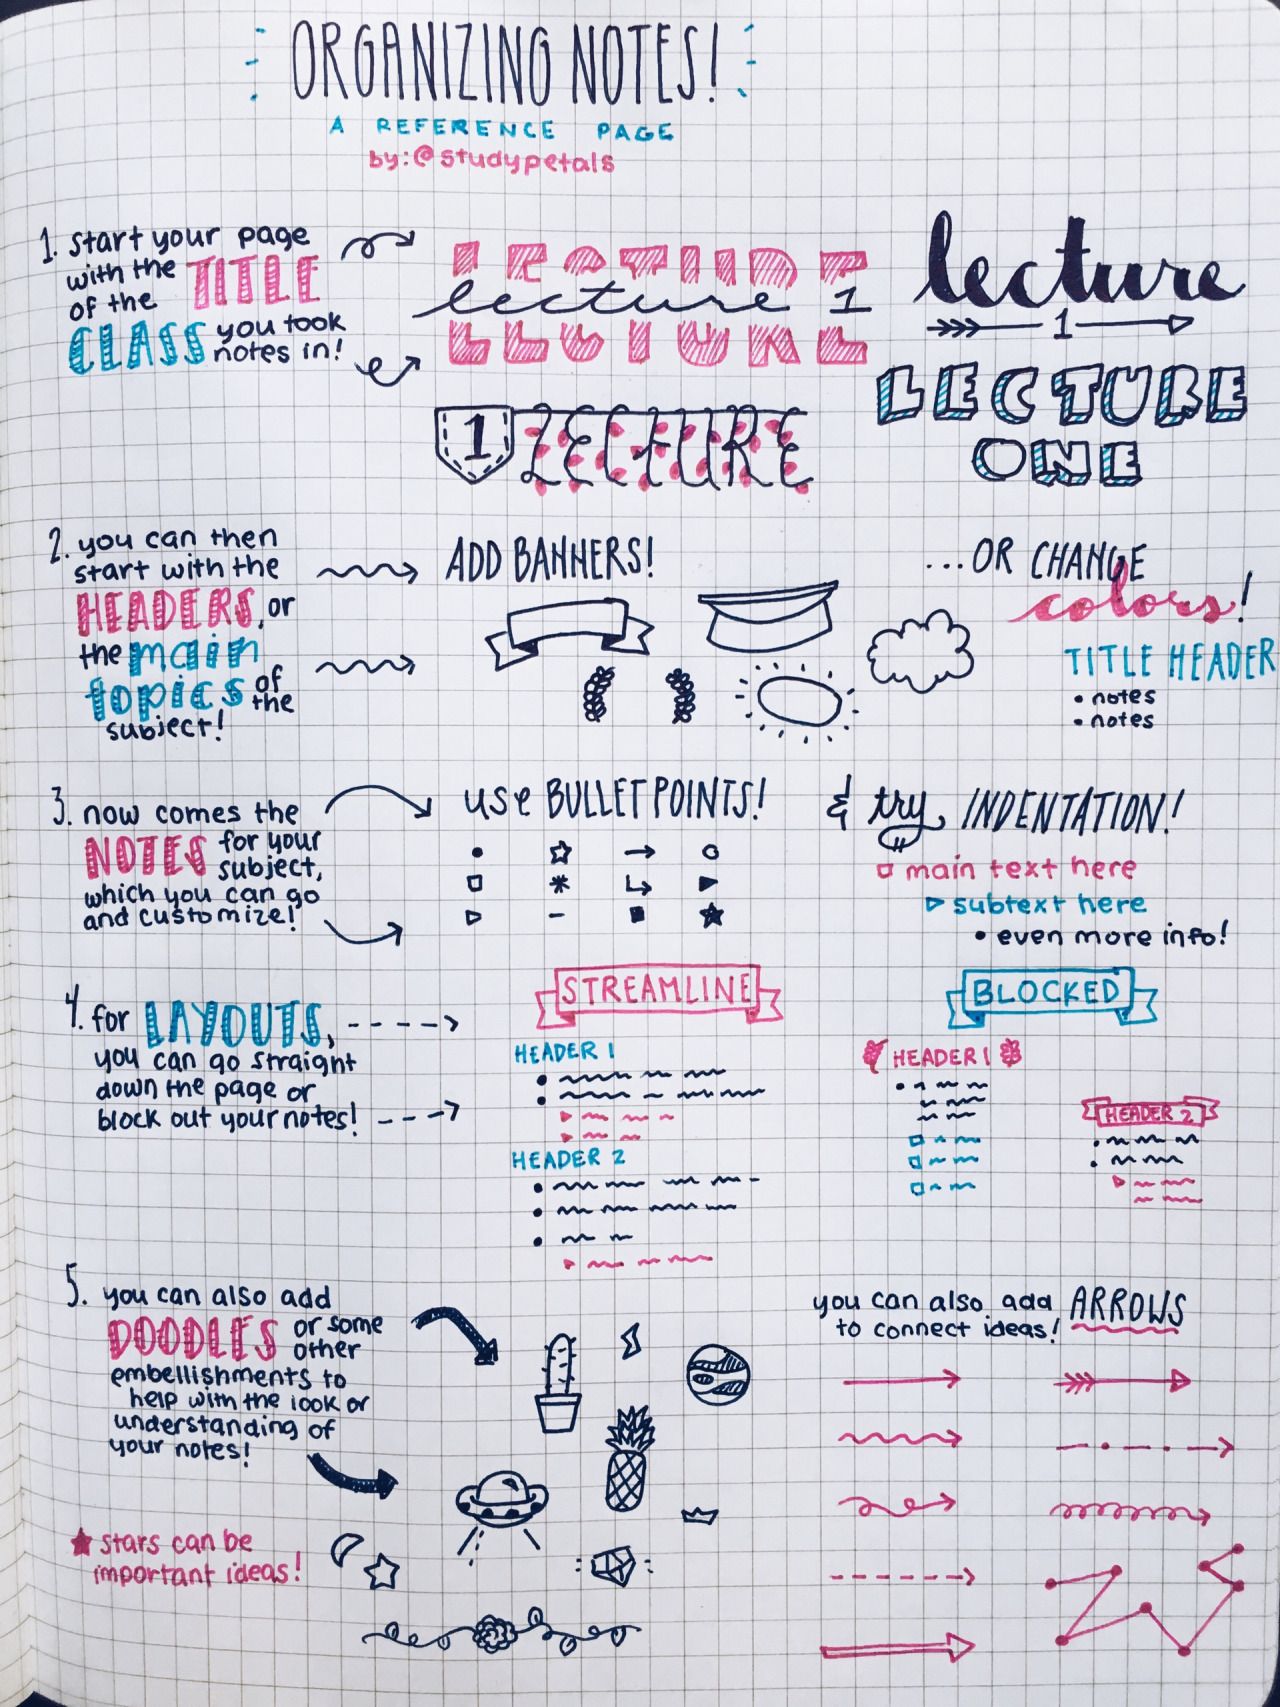 ORGANIZING NOTES!
A REFERENCE PAGE
by:@studypetals
1. start your page
with the TITLE
of the
CLASS you took
notes in!
LECTURE
lecture 1
lecture
1
LECTURE
ONE
1 LECTURE
2. you can then
start with the
HEADERS, or
the main
topics of
the
subject!
ADD BANNERS!
...OR CHANGE
colors!
TITLE HEADER
• notes
• notes
3. now comes the
NOTES for your
subject,
which you can go
and customize!
use BULLET POINTS!
& try INDENTATION!
main text here
subtext here
• even more info!
4. for LAYOUTS,
you can go straight
down the page or
block out your notes!
STREAMLINE
HEADER 1
HEADER 2
BLOCKED
HEADER 1
HEADER 2
5. you can also add
DOODLES or some
other
embellishments to
help with the look or
understanding of
your notes!
★ stars can be
important ideas!
you can also add ARROWS
to connect ideas!